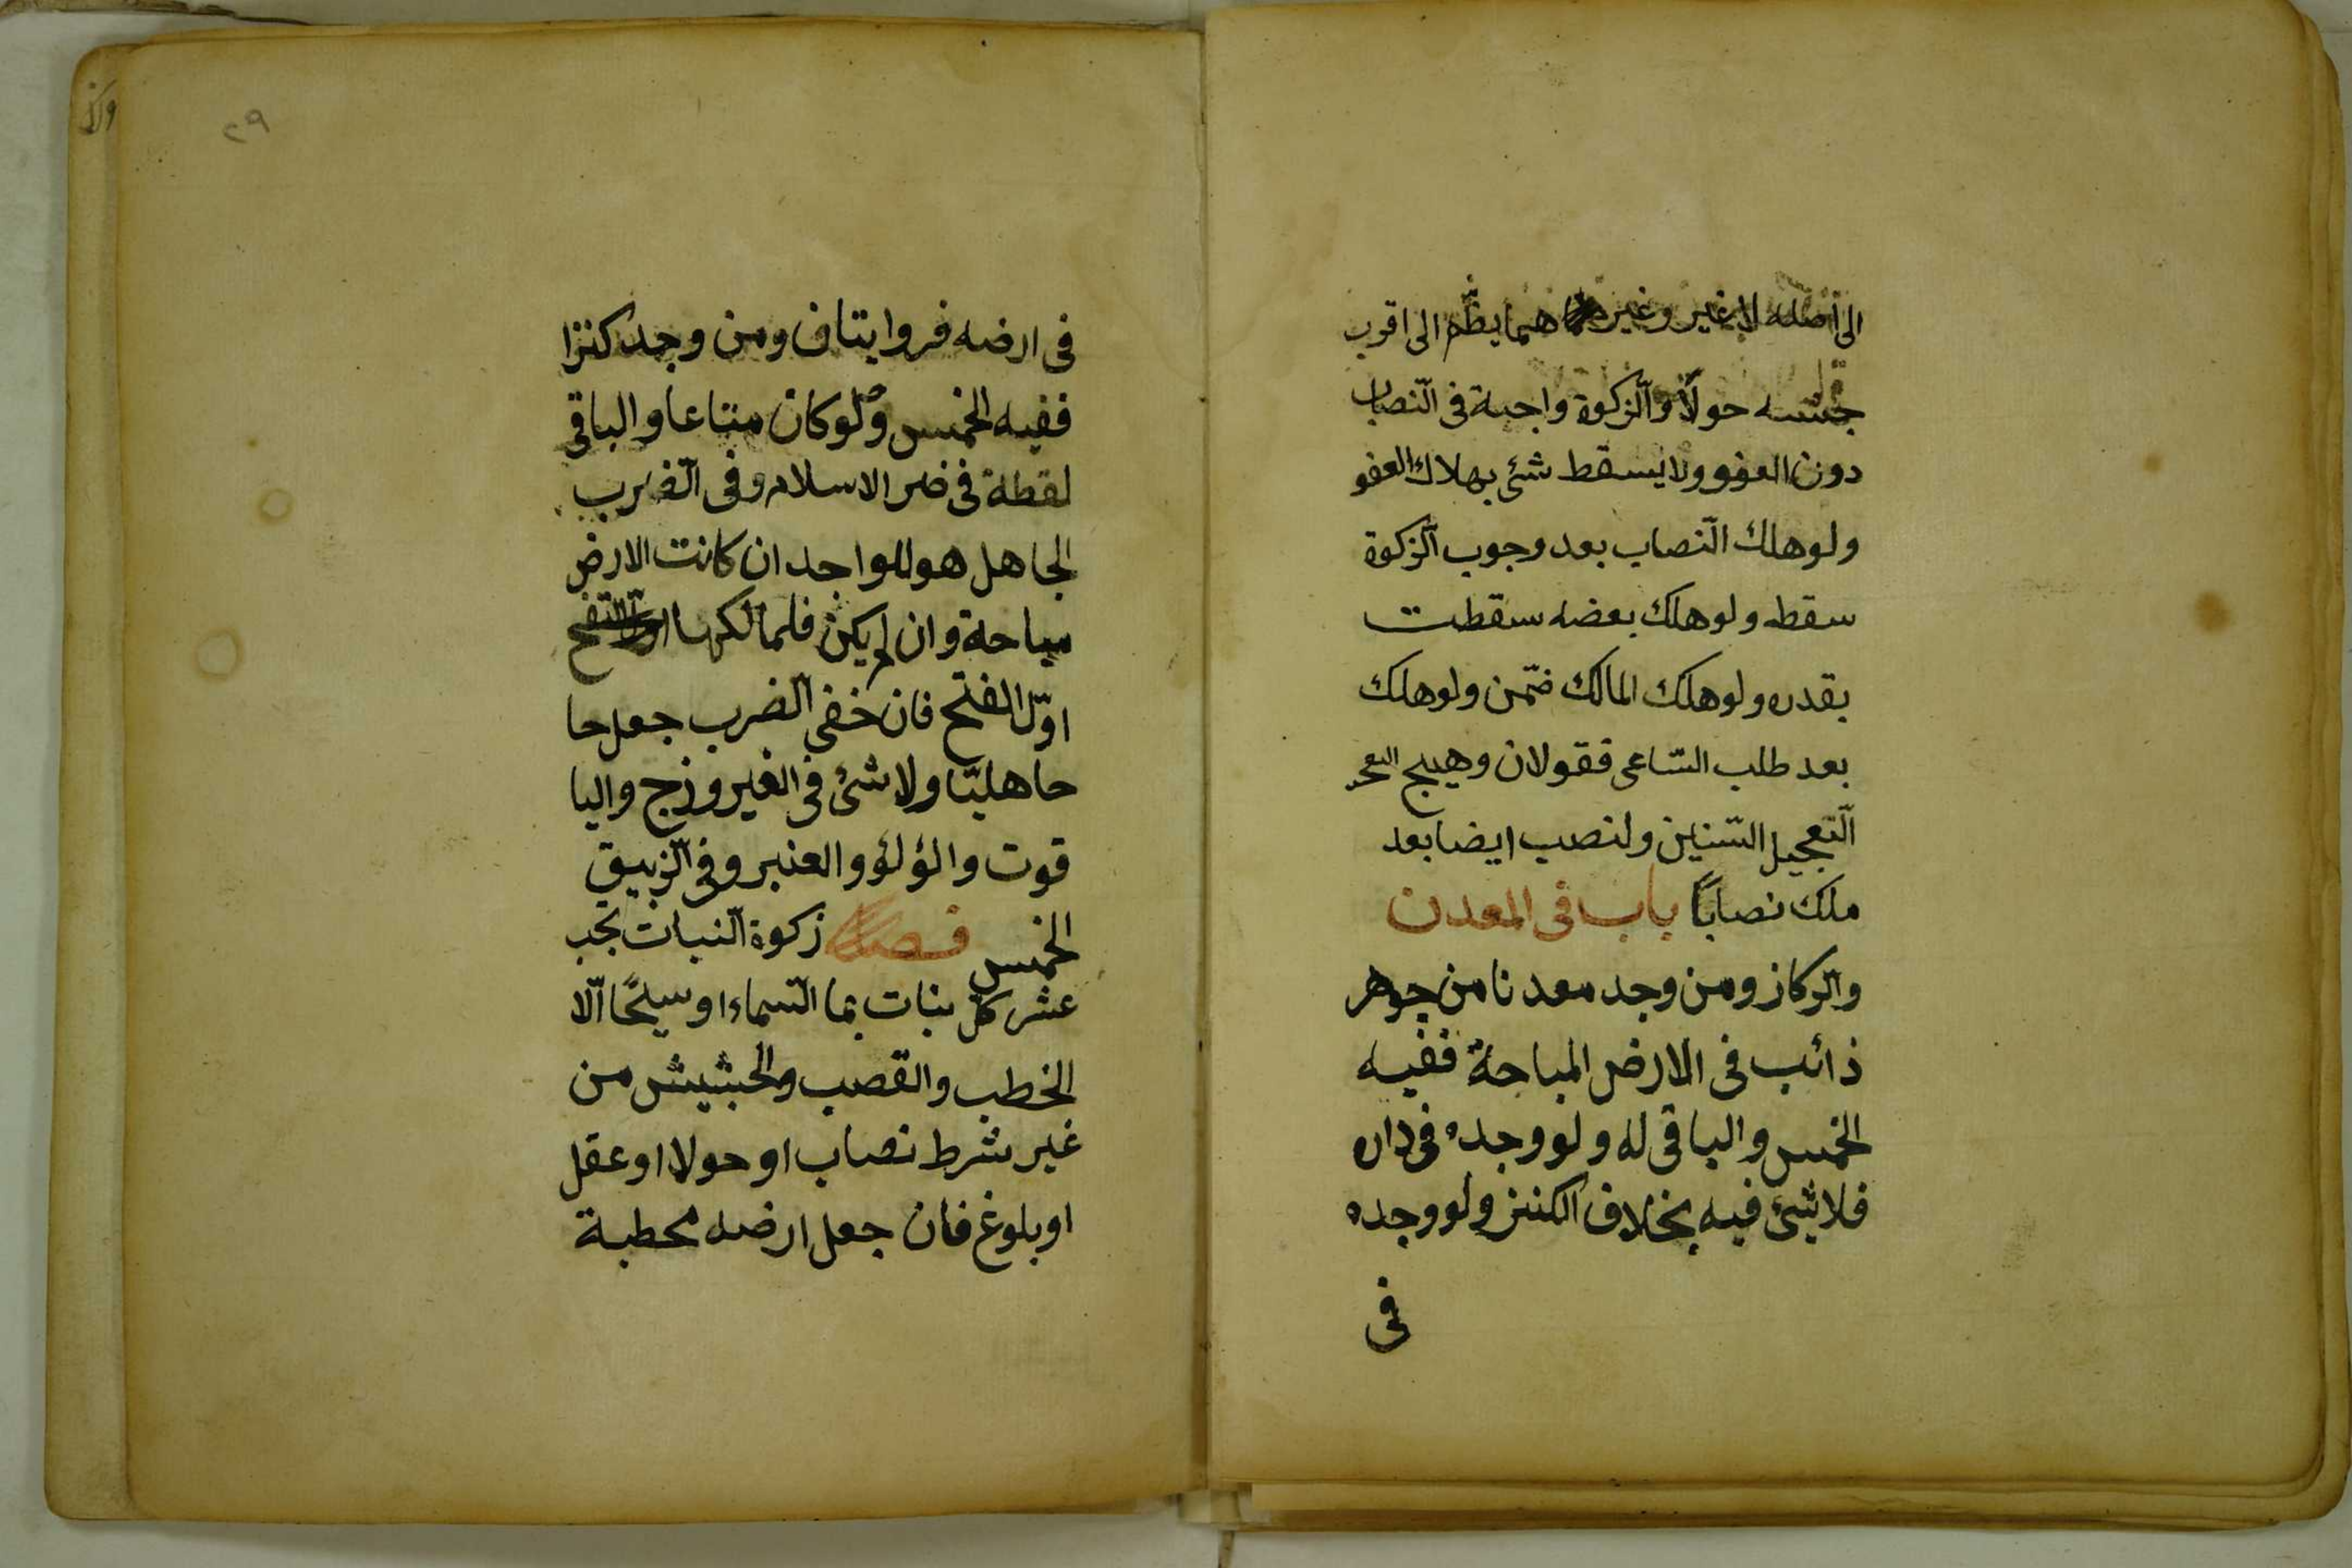 الى اصله لا غير وغير هما يظّم الى اقرب
جنسه حولًا والزّكوة واجبة فى النّصاب
دون العفو ولا يسقط شئ بهلاك العفو
ولو هلك النّصاب بعد وجوب الزّكوة
سقط ولو هلك بعضه سقطت
بقدره ولو هلك المالك ضمّن ولو هلك
بعد طلب السّاعى فقولان وهيج
التّعجيل السّنين ولنصب ايضا بعد
ملك نصابًا باب فى المعدن
والركاز ومن وجد معدنا من جوهر
ذائب فى الارض المباحة ففيه
الخمس والباقى له ولو وجده فى داره
فلا شئ فيه بخلاف الكنز ولو وجده
فى
٢٩
فى ارضه فروايتان ومن وجد كنزا
ففيه الخمس ولو كان متاعا والباقى
لقطة فى ضر الاسلام وفى الضّرب
الجاهل هو للواجد ان كانت الارض
مباحة وان لم يكن فلمالكها
اوّل الفتح فان خفى الضرب جعل حا
حاهليّا ولا شئ فى الفيروزج واليا
قوت والؤلؤ والعنبر وفى الزّيبق
الخمس فصل زكوة النّبات تجب
عشر كل نبات بما السّماء او سيحًا الّا
الخطب والقصب والحشيش من
غير شرط نصاب او حولا او عقل
او بلوغ فان جعل ارضه محطبة